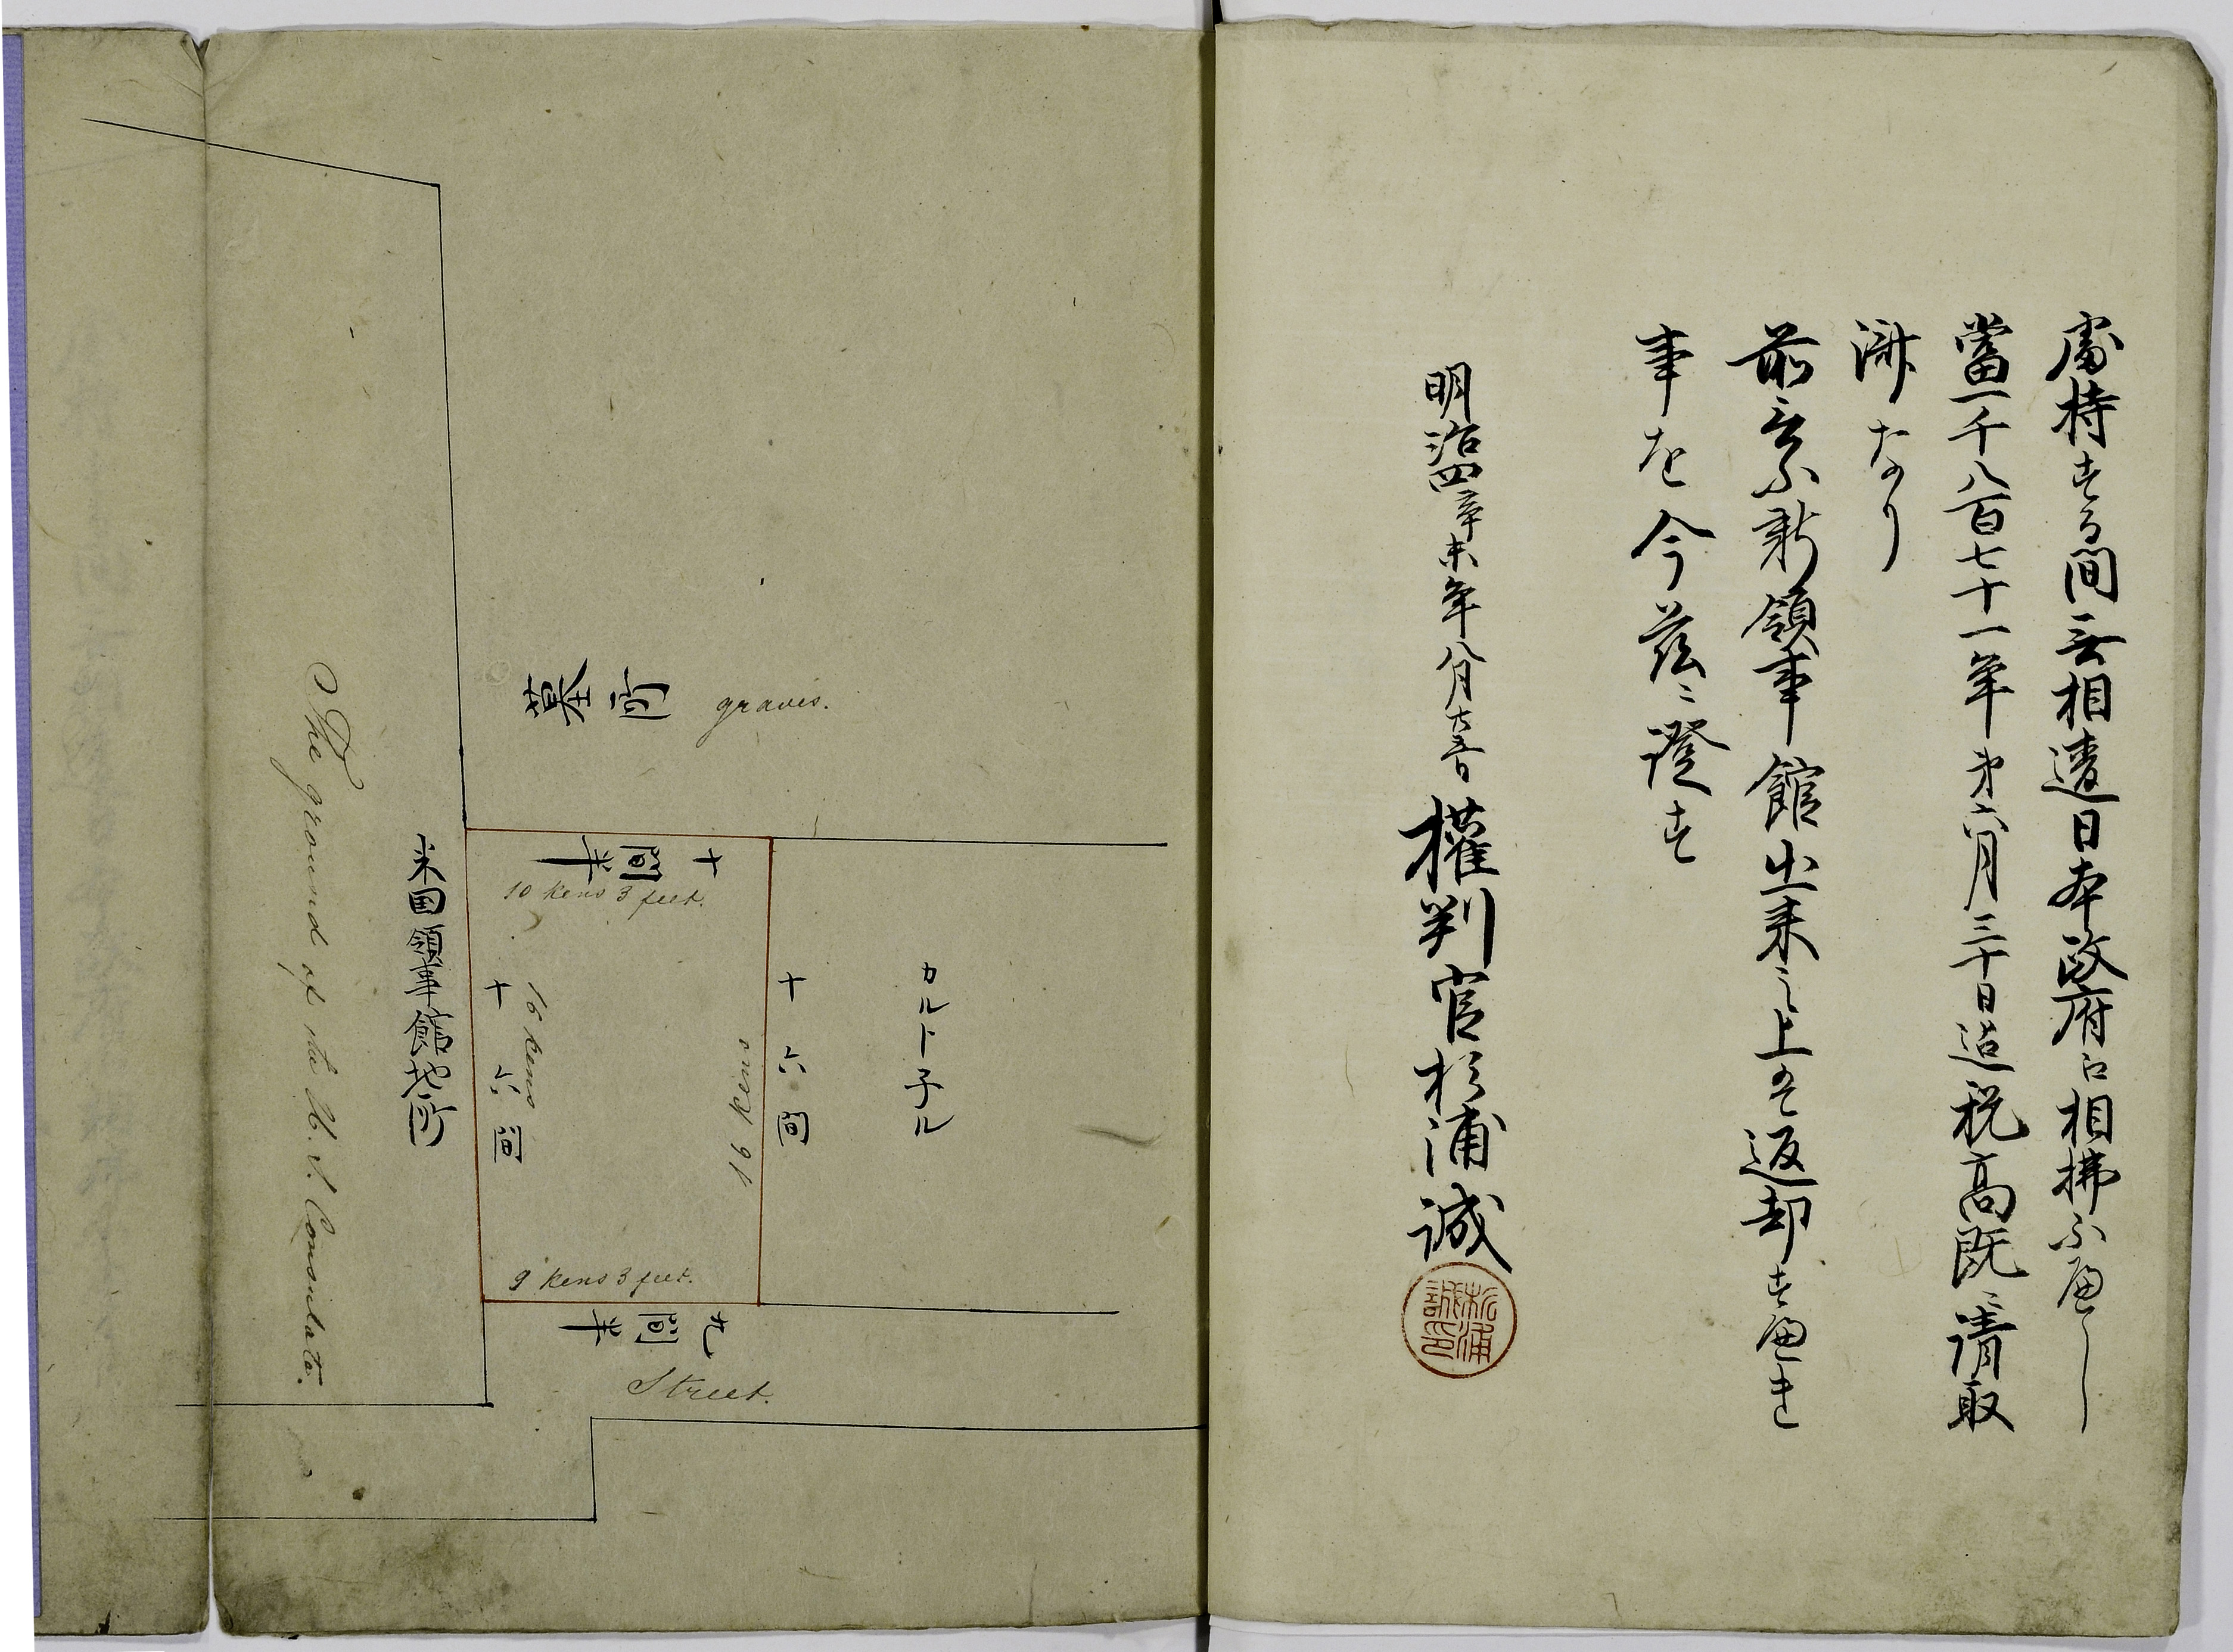 處持する間無相違日本政府江相拂ふ遍し
當一千八百七十一年第六月三十日迄税高既ニ請取
済なり
前之家新領事館出来之上は返却す遍き
事を今茲ニ證す
明治四辛未年八月十五日 權判官杉浦誠
杉浦誠印
墓所 graves.
十間半
10 kens 3 feet.
カルト子ル
十六間
16 kens
16 kens
十六間
9 kens 3 feet.
九間半
Street.
米国領事館地所
The ground of the U. S. Consulate.